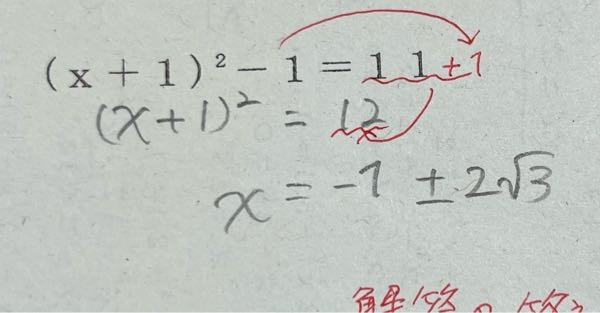 (x+1)²-1=11+1
(x+1)²=12
x=-1±2√3